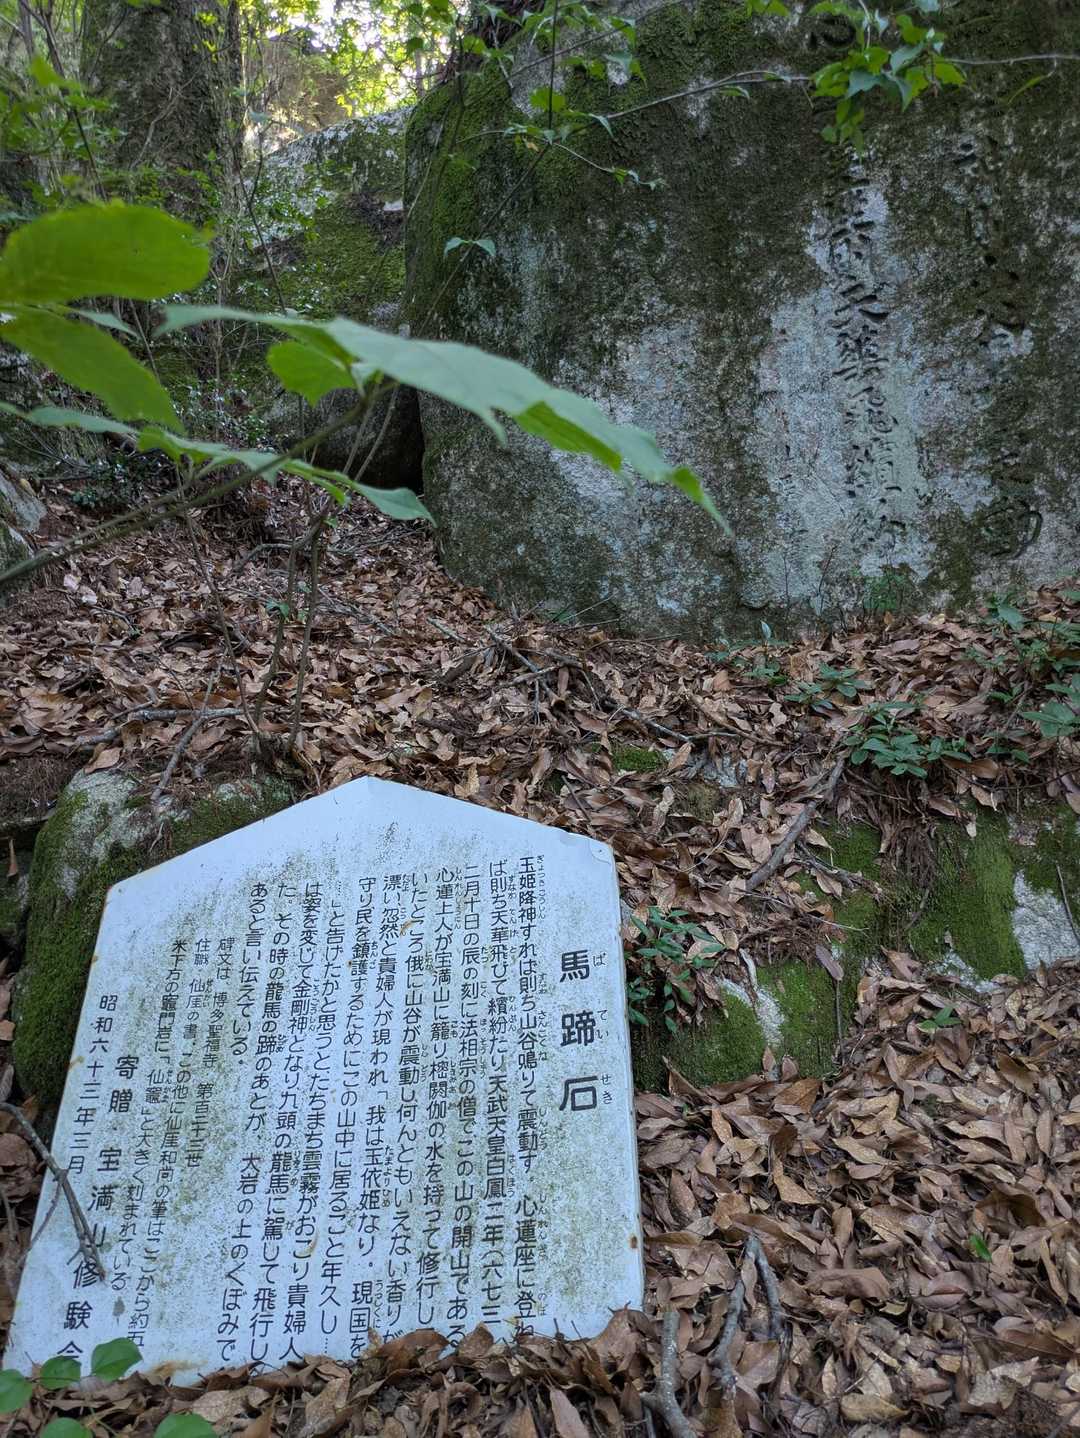 馬蹄石
玉姫降神すれば則ち山谷鳴りて震動す。心蓮座に登れ
ば則ち天華飛びて繽紛たり天武天皇白鳳二年(六七三
二月十日の辰の刻に法相宗の僧でこの山の開山である
心蓮上人が宝満山に籠り樒閼伽の水を持って修行し
いたところ俄に山谷が震動し何んともいえない香りが
漂い忽然と貴婦人が現われ「我は玉依姫なり。現国を
守り民を鎮護するためにこの山中に居ること年久し……
…」と告げたかと思うとたちまち雲霧がおこり貴婦人
は姿を変じて金剛神となり九頭の龍馬に駕して飛行し
た。その時の龍馬の蹄のあとが、大岩の上のくぼみで
あると言い伝えている。
碑文は、博多聖福寺 第百二十三世
住職 仙厓の書、この他に仙厓和尚の筆はここから約五
米下方の竈門岩に「仙竈」と大きく刻まれている
昭和六十三年三月
寄贈 宝満山修験会